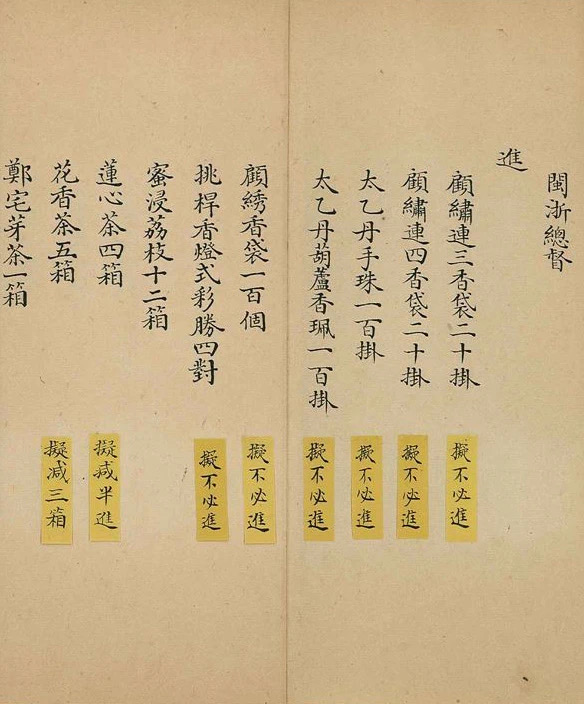 閩浙總督
進
顧繡連三香袋二十掛
擬不必進
顧繡連四香袋二十掛
擬不必進
太乙丹手珠一百掛
擬不必進
太乙丹葫蘆香珮一百掛
擬不必進
顧綉香袋一百個
擬不必進
挑桿香燈式彩勝四對
擬不必進
蜜浸荔枝十二箱
蓮心茶四箱
擬減半進
花香茶五箱
擬減三箱
鄭宅芽茶一箱